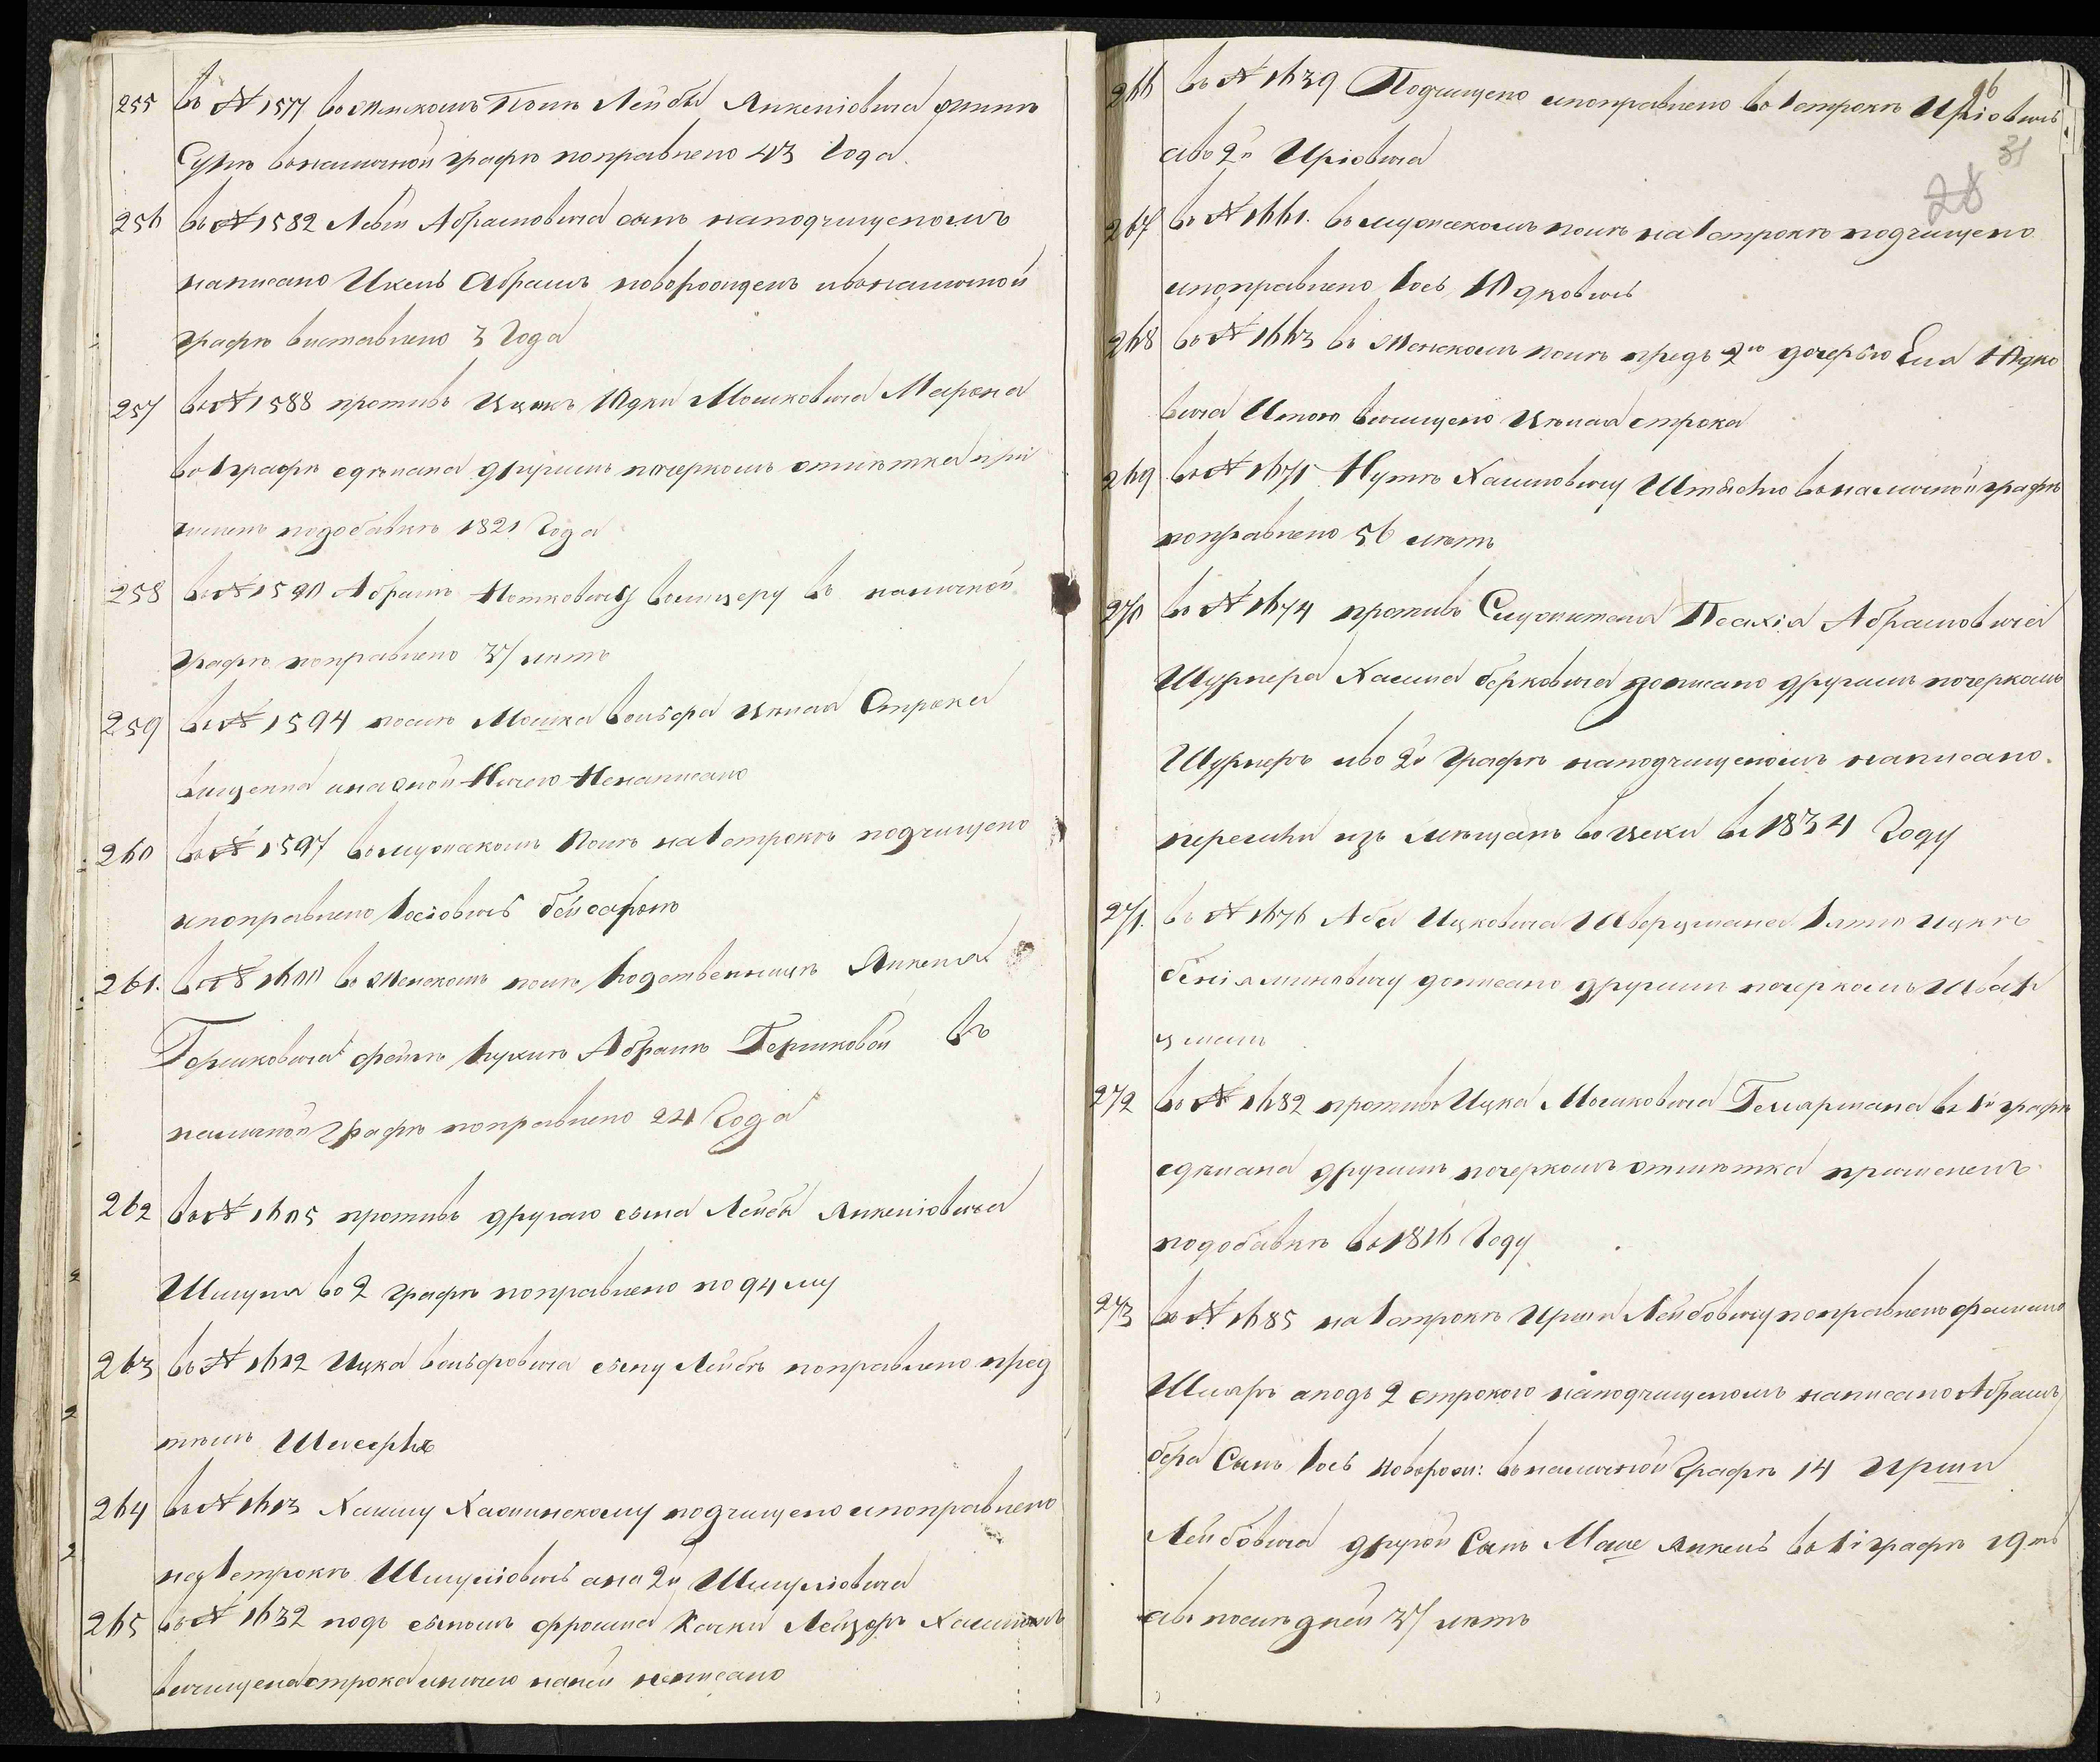 255 въ № 1577 въ Женскомъ Полѣ Лейбы Янкеліовича
Сурѣ въ наличной графѣ поправлено 43 Года.
256 въ № 1582 Лейбы Абрамовича сынъ на подчищеномъ
написано Икель Абрамъ новорожденъ и въ наличной
графѣ выставлено 3 Года
257 въ № 1588 противъ Ицикъ Юдки Мошковича Марона
во 1 графѣ сдѣлана другимъ почеркомъ отмѣтка при
численъ подобавкѣ 1821 Года
258 въ № 1590 Абрамъ Ношковичу в наличной
графѣ поправлено 37 лѣтъ
259 въ № 1594 послѣ Мошка Вольфа цѣлая Строка
и на оной Ничего Ненаписано
260 въ № 1597 въ мужескомъ Полѣ на 1 строкѣ подчищено
и поправлено Іосіовичъ
261. въ № 1600 въ Женскомъ полѣ Янкеля
Гершковича Абрамъ Гершковой въ
наличной Графѣ поправлено 24 Года
262 въ № 1605 противъ другаго сына Лейбы Янкеліовича
Шмуля во 2 графѣ поправлено по 94 му
263 въ № 1612 Ицка Вольфовича сыну Лейбѣ поправлено пред
тѣмъ
264 въ № 1613 Хаиму Хасминскому подчищено и поправлено
на 1 строкѣ Шмуліовичъ а на 2й Шмуліовича
265 въ № 1632 подъ сыномъ Фроима Качки Лейзоръ Хаимомъ
вычищена строка и ничего на ней написано
26
31
28
266 въ № 1639 Подчищено и поправлено во 1 строкѣ Иріовичъ
а во 2й Иріовича
267 въ № 1661. въ мужескомъ полѣ на 1 строкѣ подчищено
и поправлено Іось Юдковичъ
268 въ № 1663 въ Женскомъ полѣ предъ 2ю дочерью Еля Юдко
вича Итою вычищено цѣлая строка
269 въ № 1671 Нутѣ Хаимовичу въ наличной графѣ
поправлено 56 лѣтъ
270 въ № 1674 противъ Служителя Песахія Абрамовича
Шурпера Хаима Берковича дописано другимъ почеркомъ
Шурперъ и во 2й Графѣ на подчищеномъ написано.
перешли изъ мѣщанъ въ цехи въ 1834 Году
271. въ № 1676 Аба Ицковича Шварцмана Зятю Ицкѣ
Беніяминовичу дописано другимъ почеркомъ Швар
цманъ
272 въ № 1682 противъ Ицка Мошковича Гемярмана въ 1й графѣ
сдѣлана другимъ почеркомъ отмѣтка причисленъ
подобавкѣ въ 1816 Году
273 въ № 1685 на 1 строкѣ Ирши Лейбовичу поправлено фамилію
Шмяръ а подъ 2 строкою на подчищеномъ написано Абрамъ
Бера Сынъ Іось новорож: въ наличной Графѣ 14 Ирши
Лейбовича другой Сынъ Маше Янкель въ 1й графѣ 19ть
а въ послѣдней 37 лѣтъ